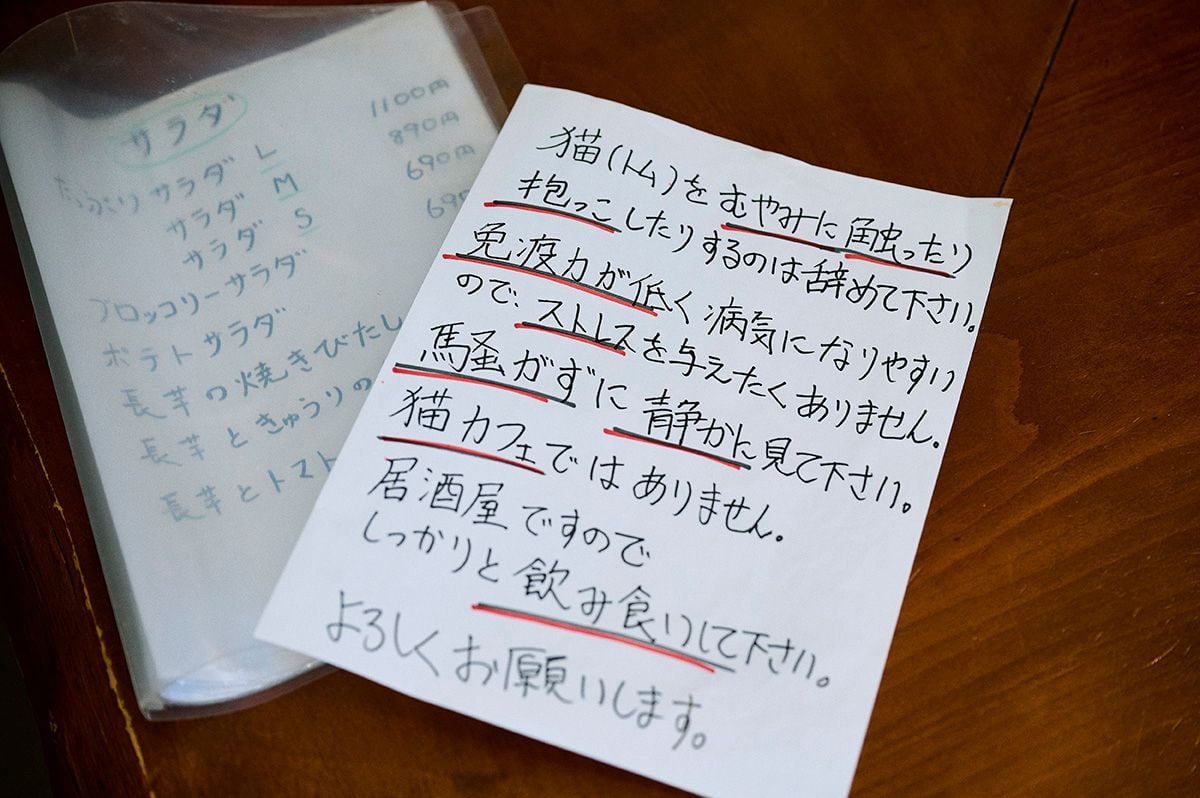 サラダ
たっぷりサラダ L 1100円
サラダ M 890円
サラダ S 690円
ブロッコリーサラダ
ポテトサラダ
長芋の焼きびたし
長芋ときゅうりの
長芋とトマト
猫(トム)をむやみに触ったり
抱っこしたりするのは辞めて下さい。
免疫力が低く病気になりやすい
ので、ストレスを与えたくありません。
馬騒がずに静かに見て下さい。
猫カフェではありません。
居酒屋ですので
しっかりと飲み食いして下さい。
よろしくお願いします。